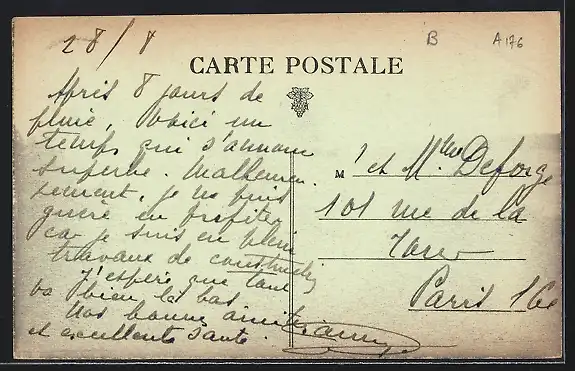 28/8
B
A176
CARTE POSTALE
Après 8 jours de
pluie, voici un
temps qui s'annonce
superbe. Malheureu-
sement, je ne puis
guère en profiter
car je suis en plein
travaux de construction
J'espère que tout
va bien là bas
Nos bonne amitiés
et excellente santé.
M r et Mme Deforge
101 rue de la
Paris 16e